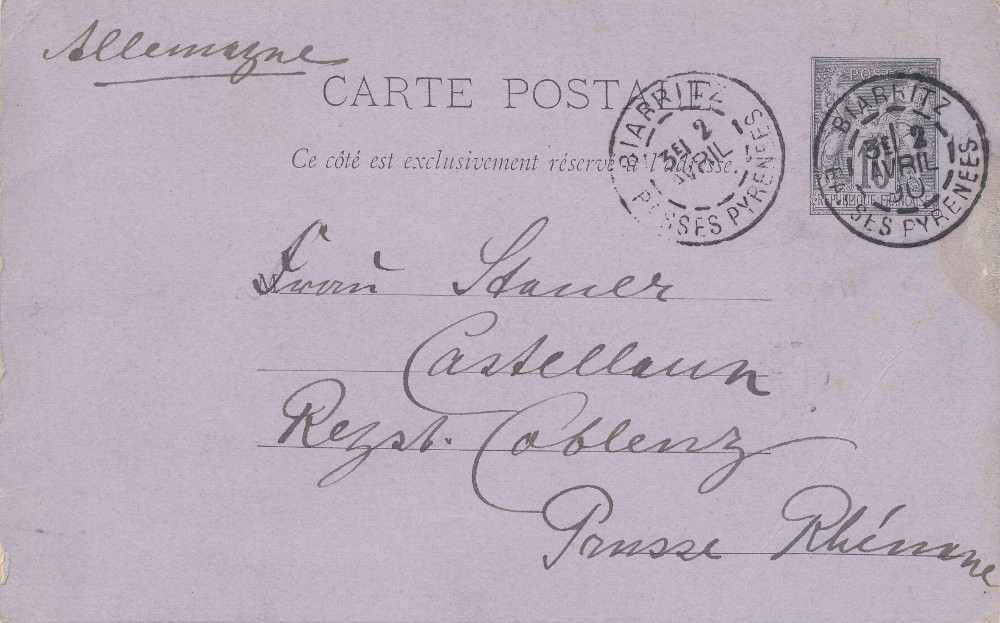 Allemagne
CARTE POSTALE
Ce côté est exclusivement réservé à l'adresse.
BIARRITZ
3E/ 2
AVRIL
BASSES PYRENEES
POSTES
10
REPUBLIQUE FRANCAISE
BIARRITZ
3E/ 2
AVRIL
90
BASSES PYRENEES
M
Frau Stauer
Castellaun
Regst. Coblenz
Prusse Rhénane